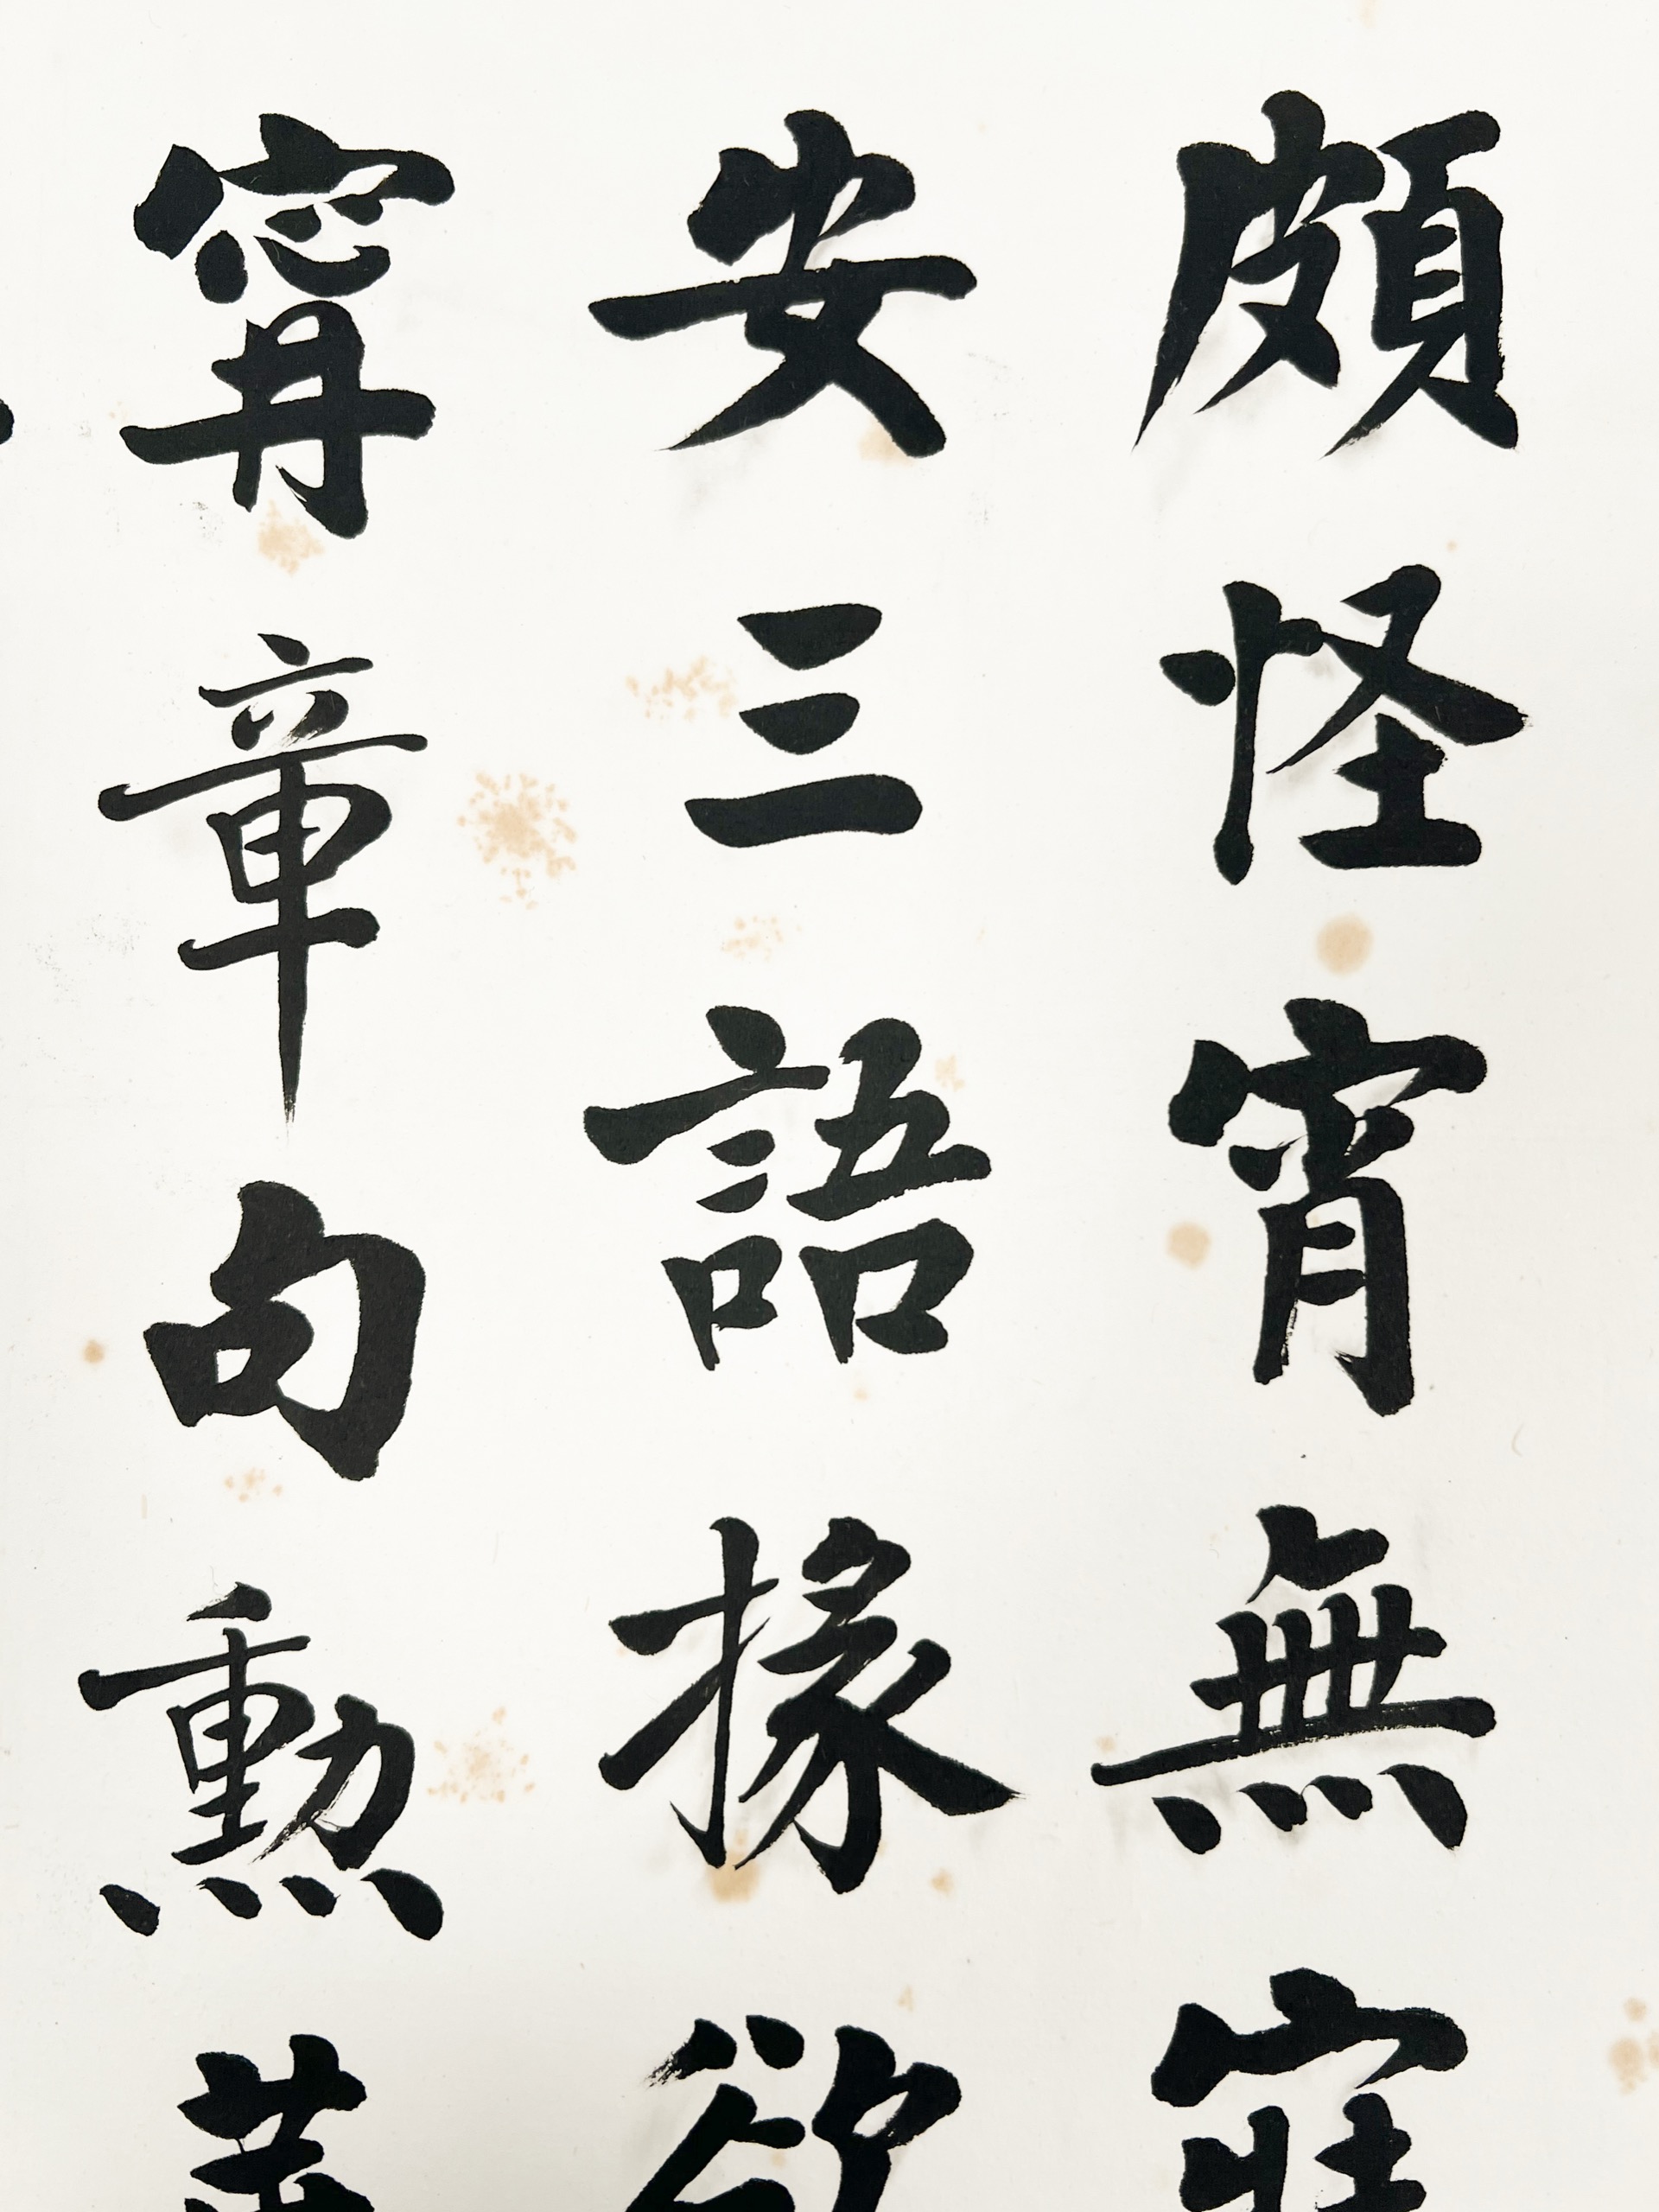 頗怪宵無
安三語掾欲
寗章句勳